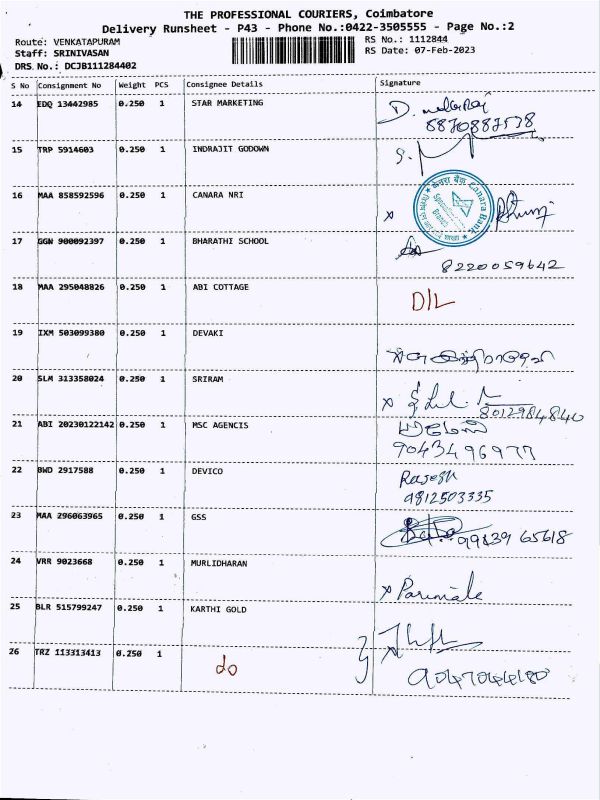 THE PROFESSIONAL COURIERS, Coimbatore
Delivery Runsheet - P43 - Phone No.:0422-3505555 - Page No.:2
Route: VENKATAPURAM RS No.: 1112844
Staff: SRINIVASAN RS Date: 07-Feb-2023
DRS No.: DCJB111284402
S No Consignment No Weight PCS Consignee Details Signature
14 EDQ 13442985 0.250 1 STAR MARKETING
8870887578
15 TRP 5914603 0.250 1 INDRAJIT GODOWN
16 MAA 858592596 0.250 1 CANARA NRI
केनरा बैंक Canara Bank
17 GGN 900092397 0.250 1 BHARATHI SCHOOL
8220059642
18 MAA 295048826 0.250 1 ABI COTTAGE D/L
19 IXM 503099380 0.250 1 DEVAKI
20 SLM 313358024 0.250 1 SRIRAM
8012984840
21 ABI 20230122142 0.250 1 MSC AGENCIS
9043496977
22 BWD 2917588 0.250 1 DEVICO Rajesh
9812503335
23 MAA 296063965 0.250 1 GSS
99439 65618
24 VRR 9023668 0.250 1 MURLIDHARAN
x Parimale
25 BLR 515799247 0.250 1 KARTHI GOLD
26 TRZ 113313413 0.250 1 do